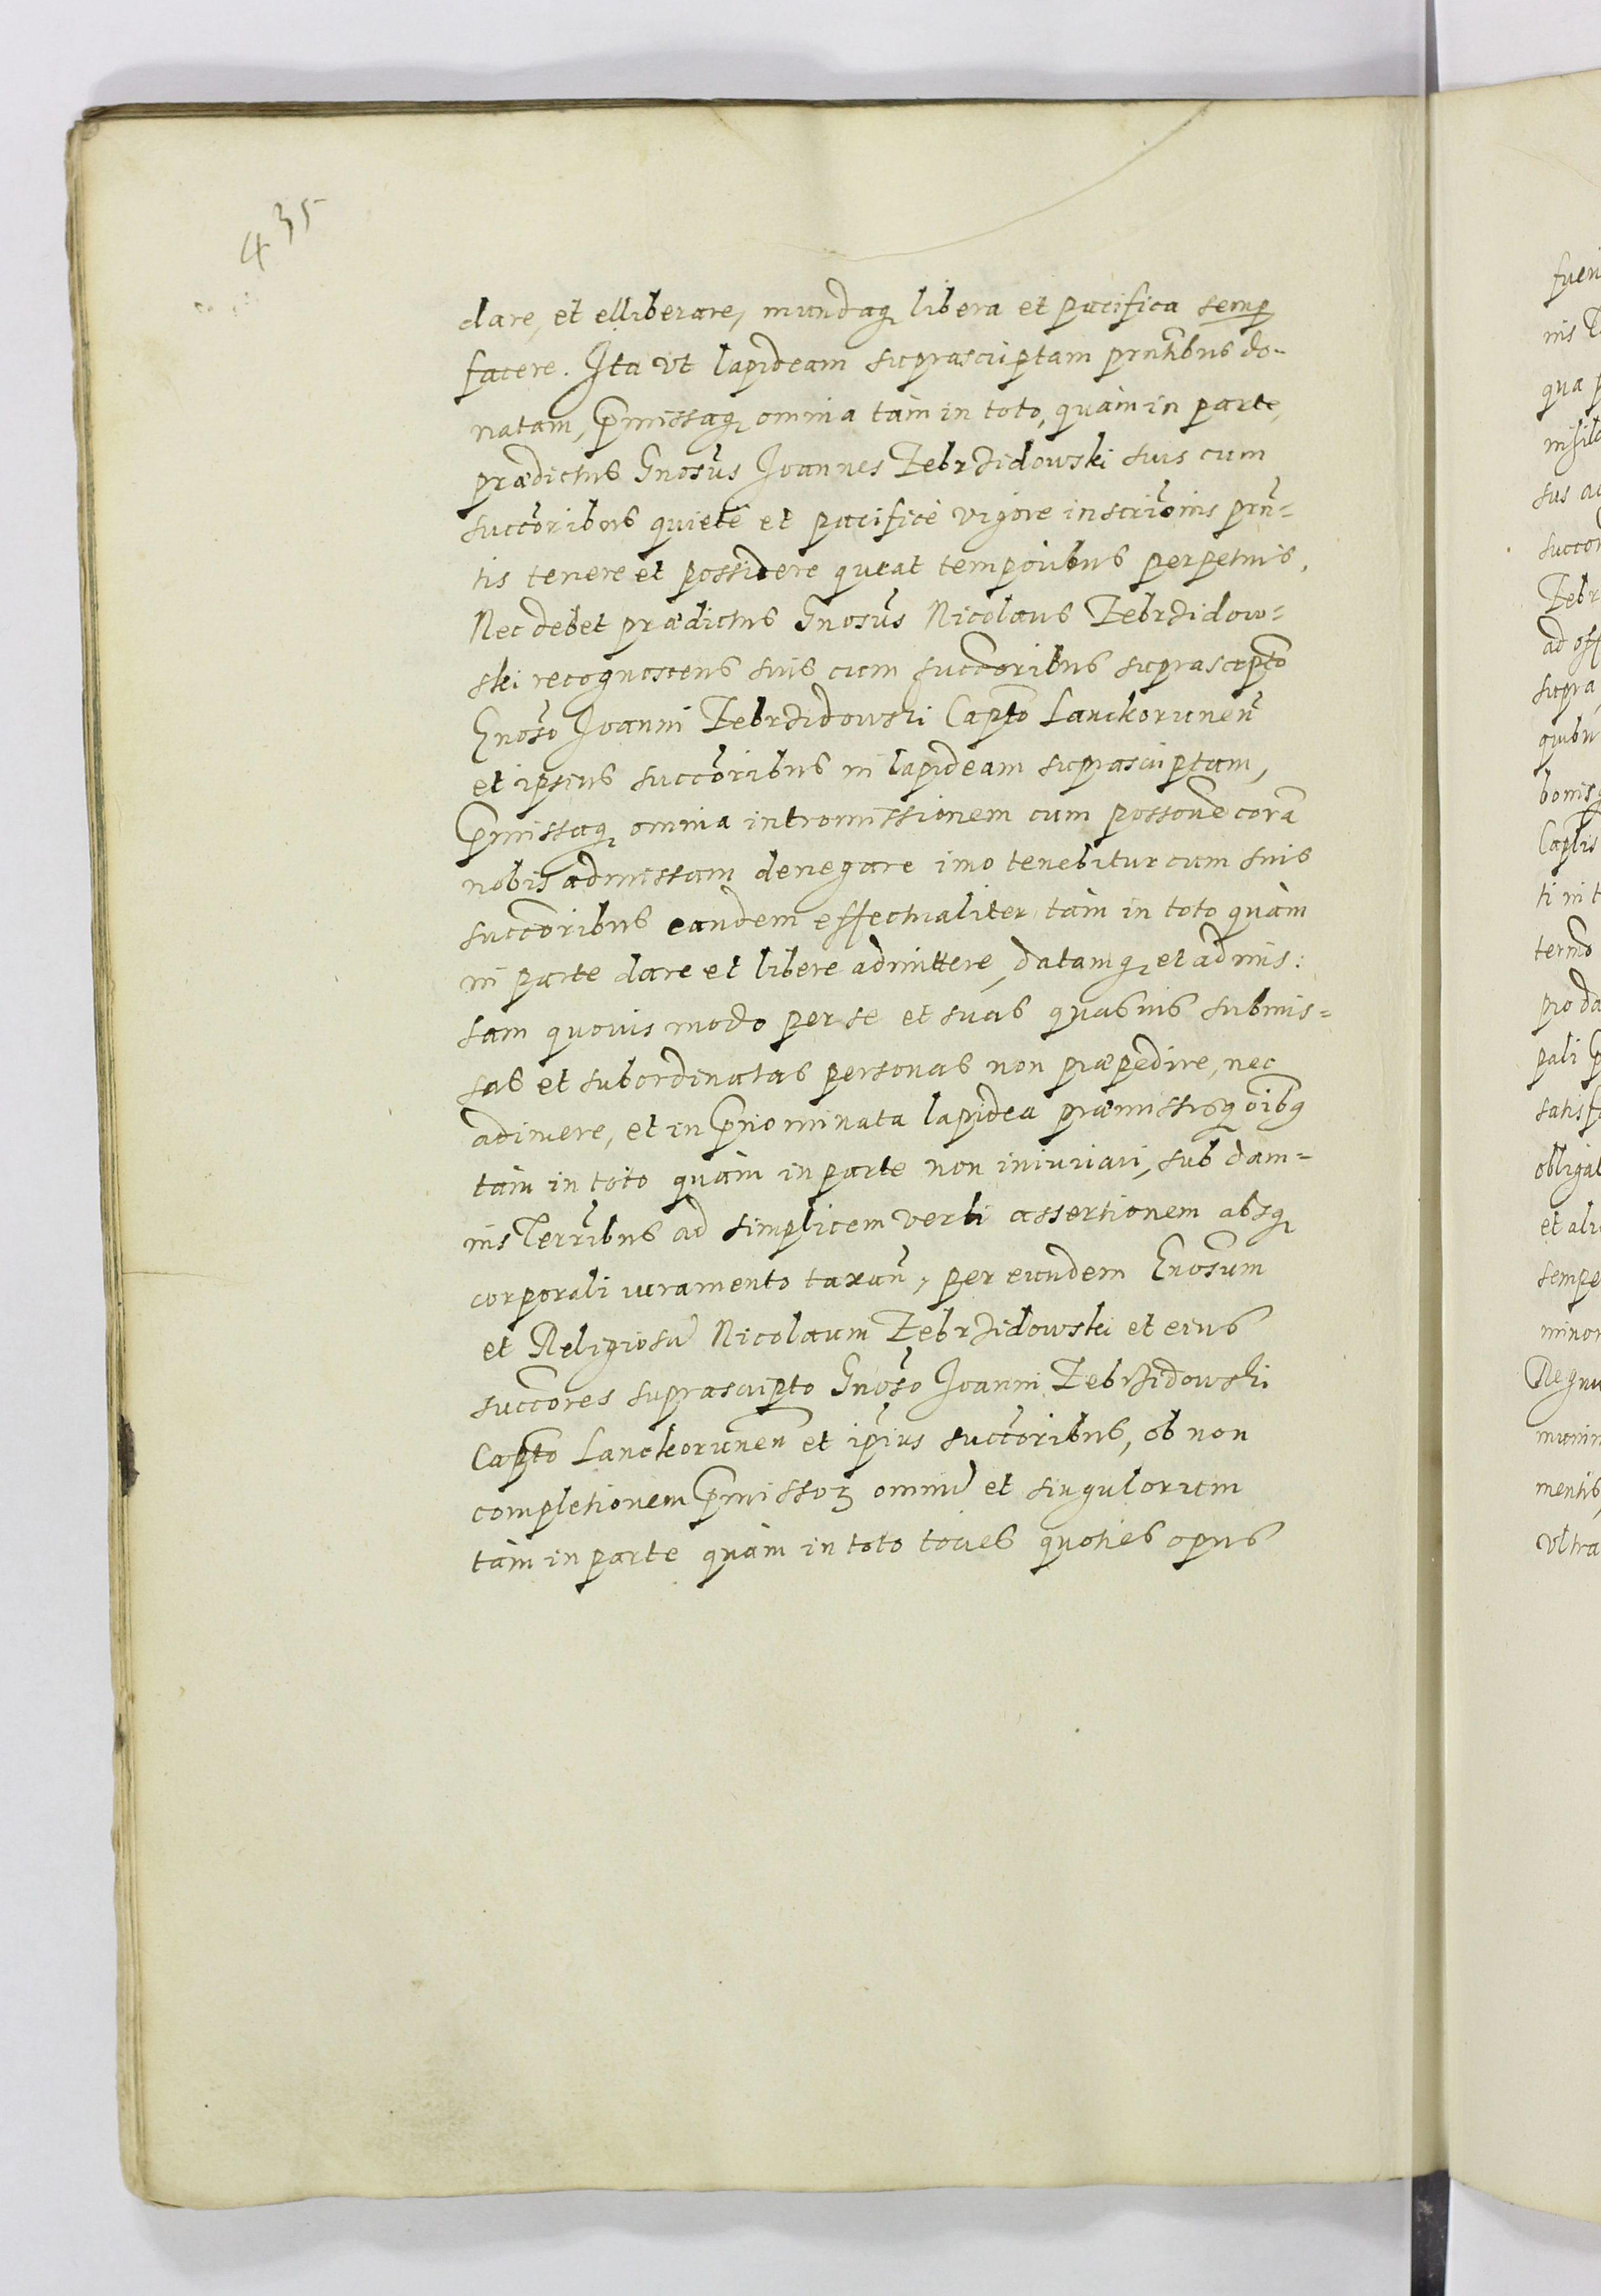 435
dare, et elliberare, mundaq; libera et pacifica semp
facere. Ita vt lapideam suprascriptam prntibus do-
natam, Pmissaq; omnia tàm in toto, quàm in parte,
prædictus Gnosus Joannes Zebrzidowski suis cum
succoribus quietè et pacificè vigore inscrionis prn=
tis tenere et possidere queat temporibus perpetuis.
Nec debet prædictus Gnosus Nicolaus Zebrzidow=
ski recognoscens suis cum succoribus suprascripto
Gnoso Joanni Zebrzidowski Capto Lanckorunen
et ipsius succoribus in lapideam suprascriptam,
Pmissaq; omnia intromissionem cum possone corā
nobis admissam denegare imo tenebitur cum suis
succoribus eandem effectualiter tàm in toto quàm
in parte dare et libere admittere, datamq; et admis:
sam quouis modo per se et suas quasuis submis=
sas et subordinatas personas non præpedire, nec
adimere, et in Pnominata lapidea præmissisq; oibq
tàm in toto quàm in parte non iniuriari, sub dam=
nis Terribus ad simplicem verbi assertionem absq;
corporali iuramento taxan, per eundem Gnosum
et Religiosū Nicolaum Zebrzidowski et eius
succores suprascripto Gnoso Joanni Zebrzidowski
Capto Lanckorunen et ipius succoribus, ob non
completionem Pmissoꝝ omniū et singulorum
tàm in parte quàm in toto toties quoties opus